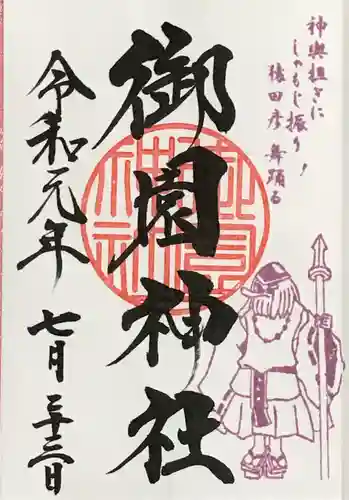 神輿担ぎに
しゃもじ振り!
猿田彦舞踊る
御園神社
令和元年 七月二十三日